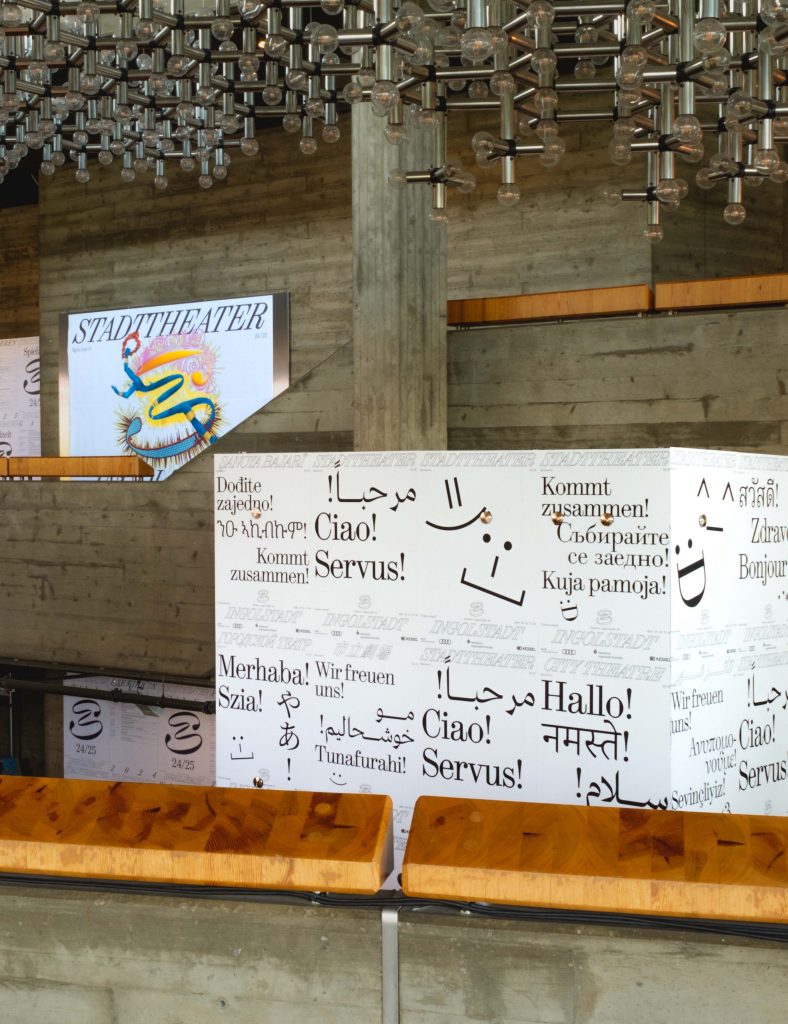 STADTTHEATER
24/25
Spiel
24/25
zeit
DANCTA BAJAR!
STADTTHEATER
STADTTHEATER
STADTTHEATER
Dođite
zajedno!
Kommt
zusammen!
مرحبــاً!
Ciao!
Servus!
Kommt
zusammen!
Събирайте
се заедно!
Kuja pamoja!
สวัสดี!
Zdravo
Bonjour
INGOLSTADT
INGOLSTADT
INGOLSTADT
KESSEL
KESSEL
KESSEL
ГОРОДСКОЙ ТЕАТР
STADTTHEATER
CITY THEATRE
Merhaba!
Szia!
やあ!
Wir freuen
uns!
مــو
خوشحالیم!
Tunafurahi!
مرحبــاً!
Ciao!
Servus!
Hallo!
नमस्ते!
ســلام!
Wir freuen
uns!
Ανυπομο-
νούμε!
Sevinçliyiz!
مرحبـ
Ciao!
Servus
24/25
24/25
2 0 2 4